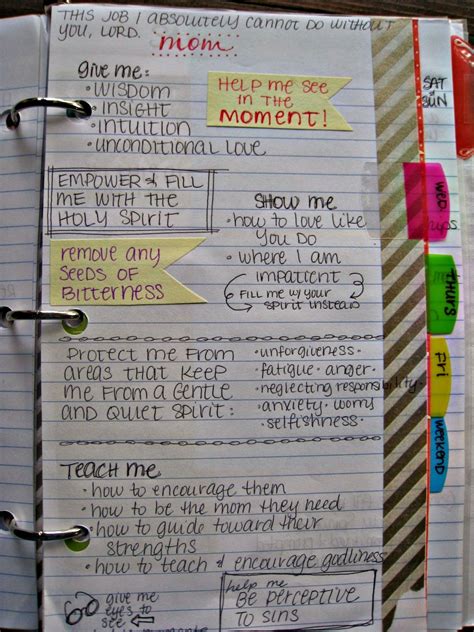 THIS JOB I ABSOLUTELY CANNOT DO WITHOUT
YOU, LORD.
mom
give me:
• WISDOM
• INSIGHT
• INTUITION
• UNCONDITIONAL LOVE
HELP ME SEE
IN THE
MOMENT!
EMPOWER & FILL
ME WITH THE
HOLY SPIRIT
SHOW me
• how to LOVE LIKE
YOU DO
• where I am
impatient
FILL ME W/ YOUR
SPIRIT INSTEAD
remove any
SEEDS OF
BITTERNESS
PROTECT ME FROM
AREAS THAT KEEP
ME FROM A GENTLE
AND QUIET SPIRIT:
• unforgiveness •
• fatigue • anger •
• neglecting responsibility •
• anxiety • worry
• selfishness •
TEACH me
• how to encourage them
• how to be the mom they need
• how to guide toward their
strengths
• how to teach & encourage godliness
give me
eyes to
see
help me
BE PERCEPTIVE
TO SINS
SAT
SUN
WED
THURS
FRI
weekend